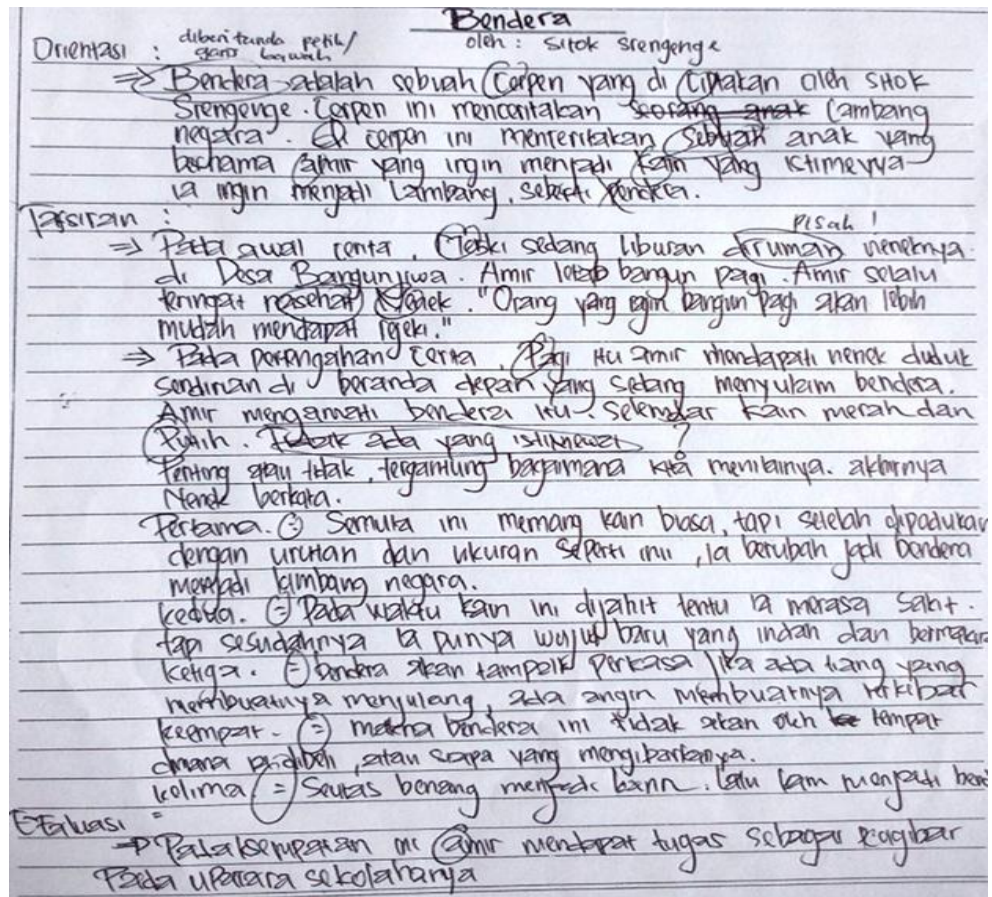 Bendera
Orientasi : diberi tanda petik/ garis bawah oleh : Sitok Srengenge
⇒ Bendera adalah sebuah Cerpen yang di Ciptakan oleh Sitok
Srengenge. Cerpen ini menceritakan seorang anak Lambang
negara. cerpen ini menceritakan sebuah anak yang
bernama amir yang ingin menjadi kain yang istimewa
ia ingin menjadi Lambang, seperti bendera.
Tafsiran : Pisah !
⇒ Pada awal cerita, Meski sedang liburan dirumah neneknya
di Desa Bangunjiwa. Amir tetap bangun pagi. Amir selalu
teringat nasehat Nenek "Orang yang bangun pagi akan lebih
mudah mendapat rejeki."
⇒ Pada pertengahan cerita, Pagi itu amir mendapati nenek duduk
sendirian di beranda depan yang sedang menyulam bendera.
Amir mengamati bendera itu. Selembar kain merah dan
Putih. Tidak ada yang istimewa ?
Penting atau tidak, tergantung bagaimana kita menilainya. akhirnya
Nenek berkata.
Pertama. = Semula ini memang kain biasa, tapi setelah dipadukan
dengan urutan dan ukuran seperti ini, ia berubah jadi bendera
menjadi lambang negara.
kedua. = Pada waktu kain ini dijahit tentu ia merasa sakit.
tapi sesudahnya ia punya wujud baru yang indah dan bermakna
ketiga. = bendera akan tampak perkasa jika ada tiang yang
membuatnya menjulang, ada angin membuatnya terkibar
keempat. = makna bendera ini tidak oleh tempat
dimana dibeli, atau siapa yang mengibarkanya.
kelima = Seutas benang menjadi kain. Lalu kain menjadi ben
Evaluasi :
⇒ Pada kesempatan ini amir mendapat tugas sebagai Pengibar
Pada upacara sekolahanya